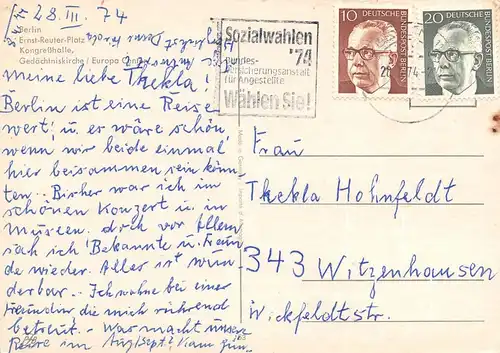 28. III. 74
Berlin
Ernst-Reuter-Platz
Kongreßhalle,
Gedächtniskirche / Europa Center
meine liebe Thekla!
Berlin ist eine Reise
wert, u. es wäre schön,
wenn wir beide einmal
hier beisammen sein könn-
ten. Bisher war ich im
schönen Konzert u. in
Museen. doch vor Allem
sah ich Bekannte u. Freun-
de wieder. Alles ist wun-
derbar. - Ich wohne bei einer
Freundin die mich rührend
betreut. - Was macht unsere
Reise im Aug/Sept?
Sozialwahlen
'74
Bundes-
versicherungsanstalt
für Angestellte
Wählen Sie!
10 DEUTSCHE
BUNDESPOST BERLIN
20 DEUTSCHE
BUNDESPOST BERLIN
Frau
Thekla Hohnfeldt
343 Witzenhausen
Wickfeldtstr.